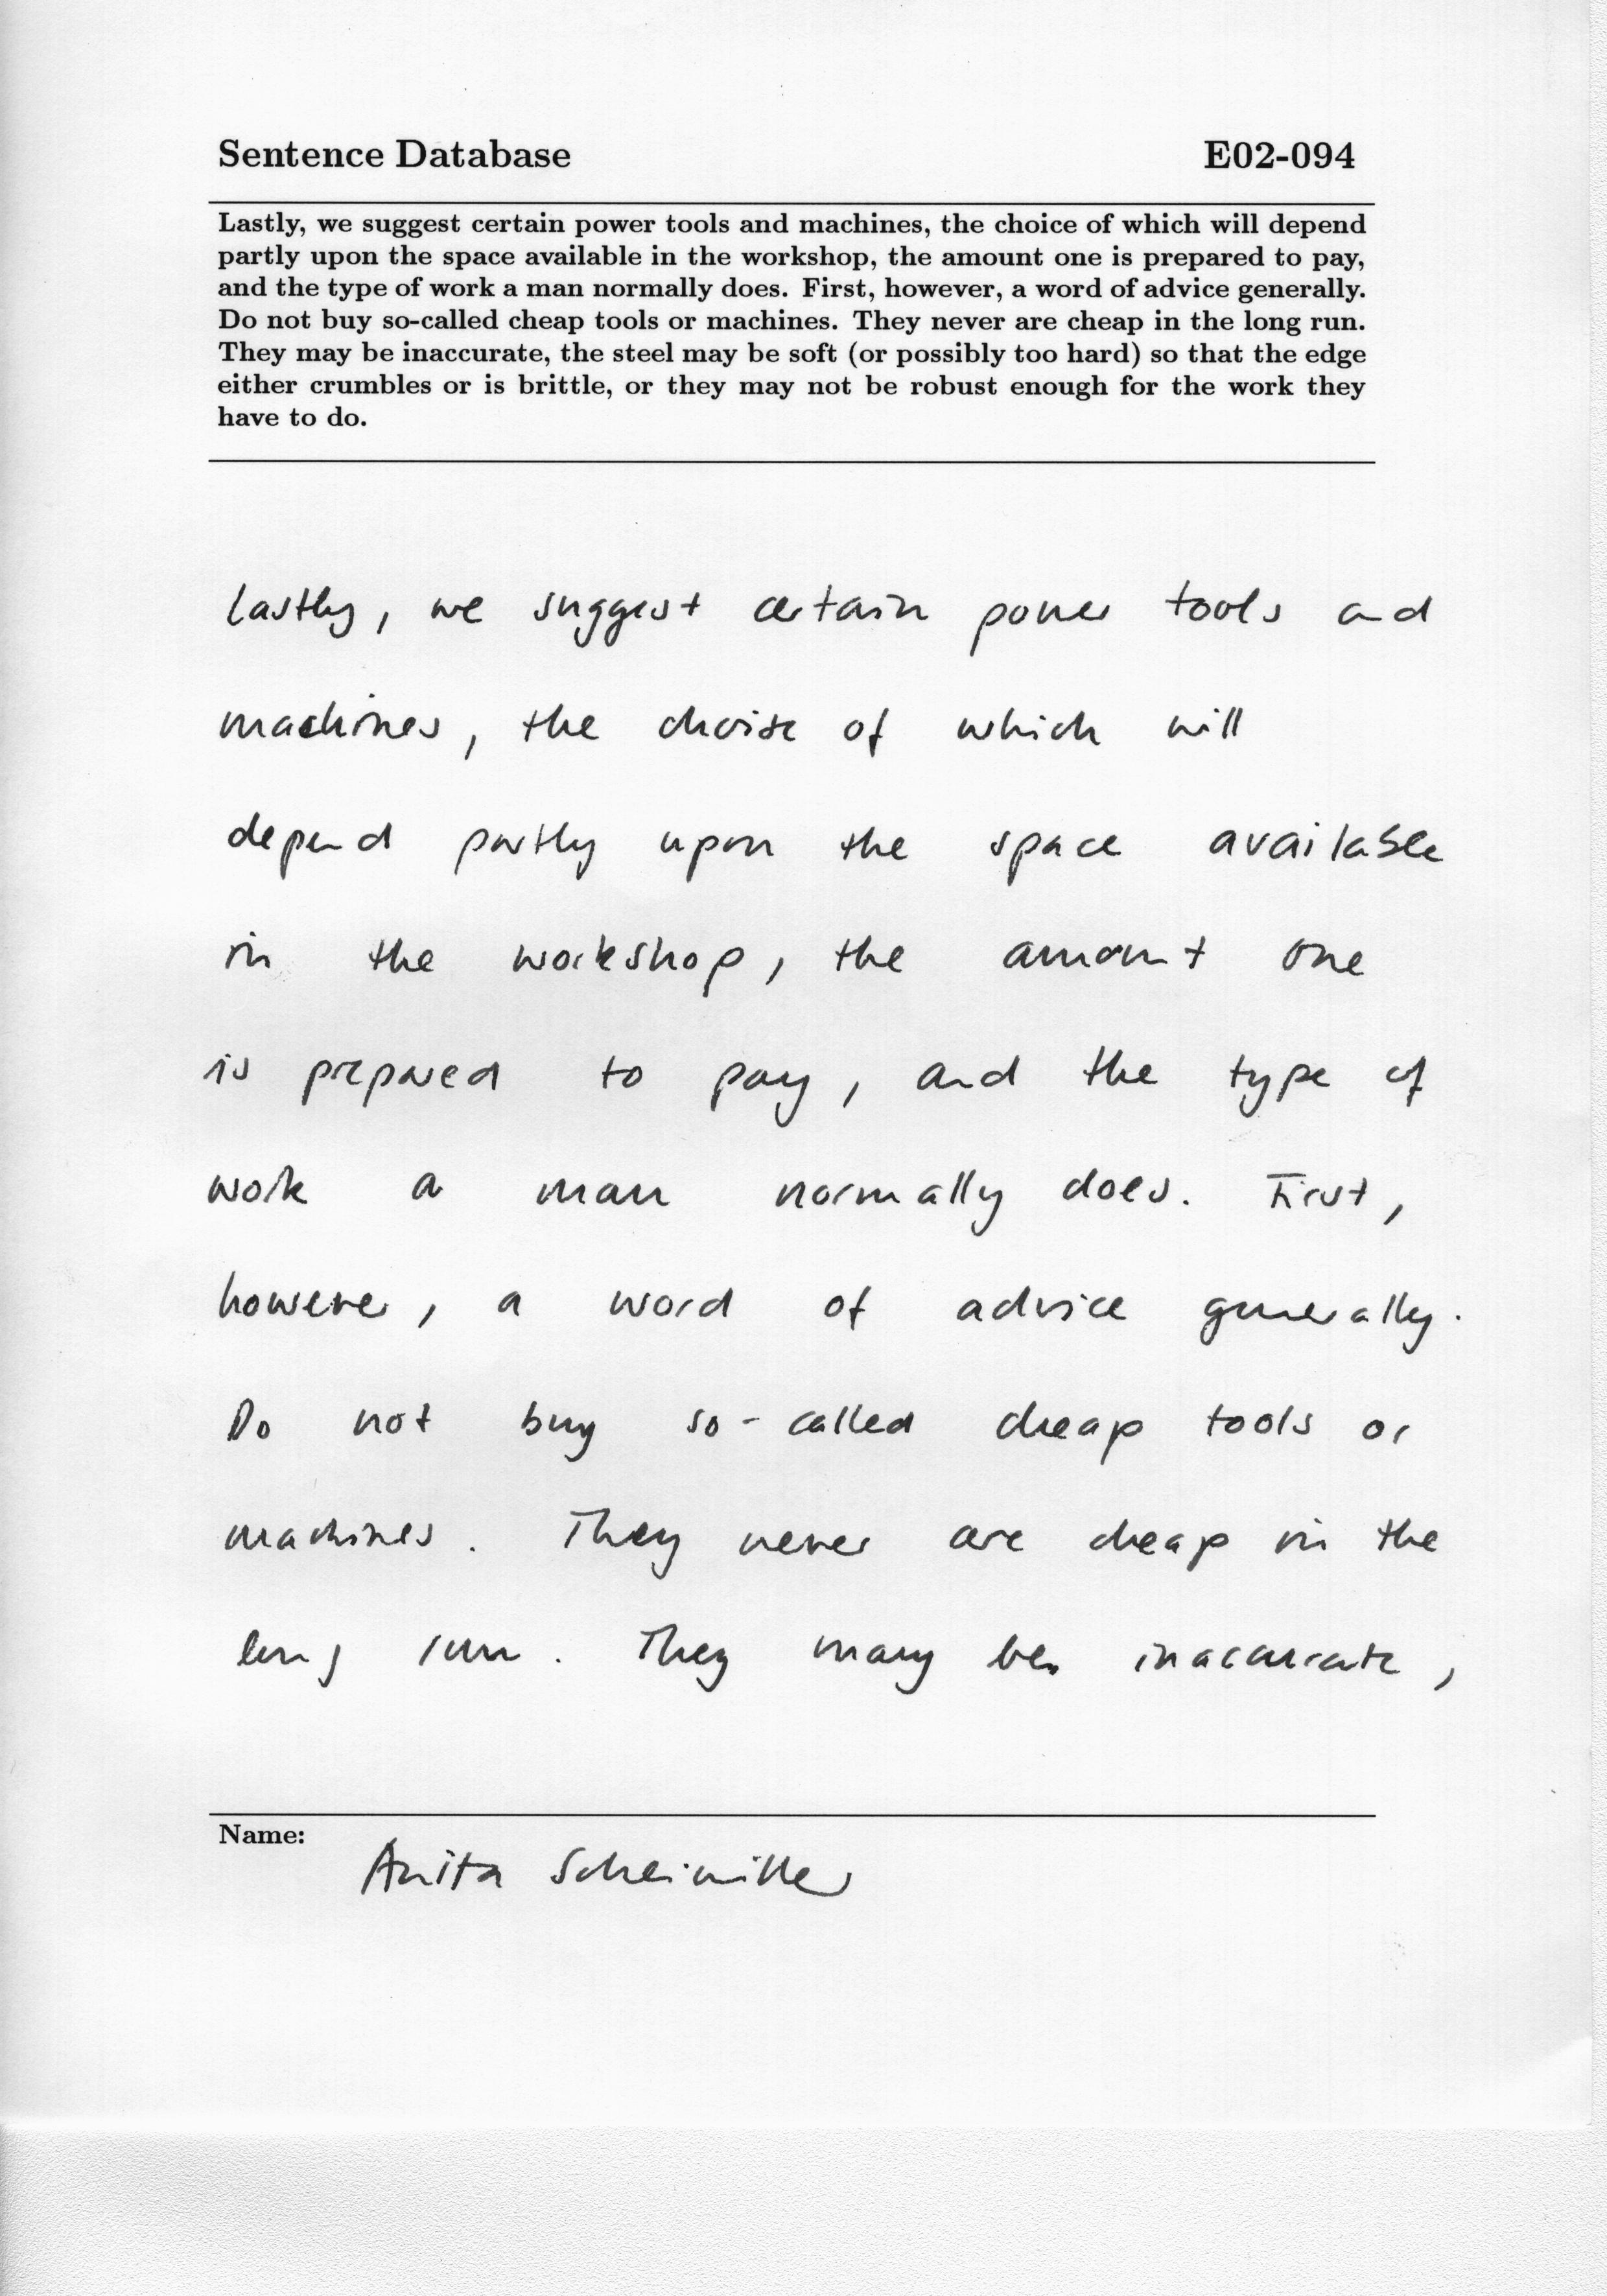 Sentence Database E02-094
Lastly, we suggest certain power tools and machines, the choice of which will depend
partly upon the space available in the workshop, the amount one is prepared to pay,
and the type of work a man normally does. First, however, a word of advice generally.
Do not buy so-called cheap tools or machines. They never are cheap in the long run.
They may be inaccurate, the steel may be soft (or possibly too hard) so that the edge
either crumbles or is brittle, or they may not be robust enough for the work they
have to do.
Lastly, we suggest certain power tools and
machines, the choise of which will
depend partly upon the space available
in the workshop, the amount one
is prepared to pay, and the type of
work a man normally does. First,
however, a word of advice generally.
Do not buy so-called cheap tools or
machines. They never are cheap in the
long run. They may be inaccurate,
Name:
Anita